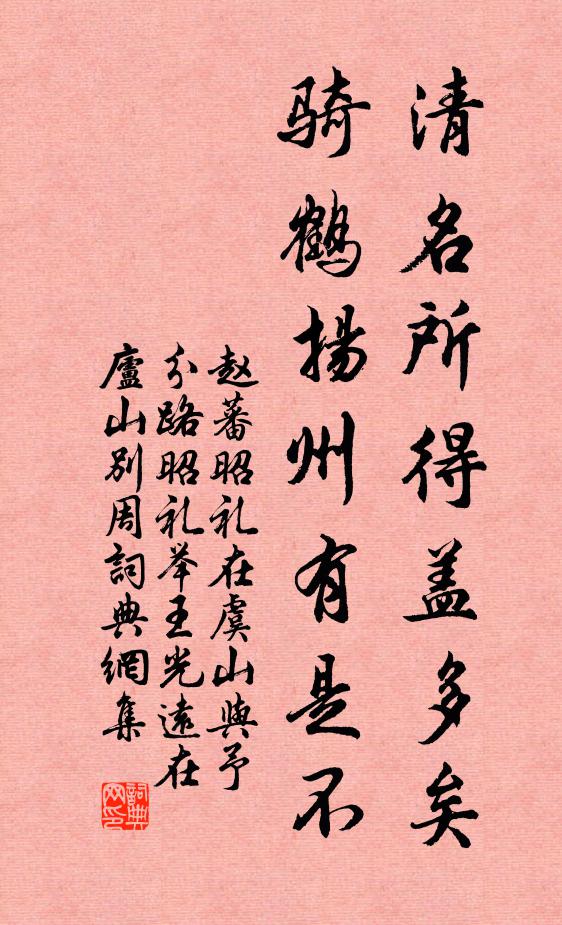 清名所得盖多矣
骑鹤扬州有是不
赵蕃昭礼在虞山與予
分路昭礼举王光遠在
廬山别周詞典網集
詞典网印